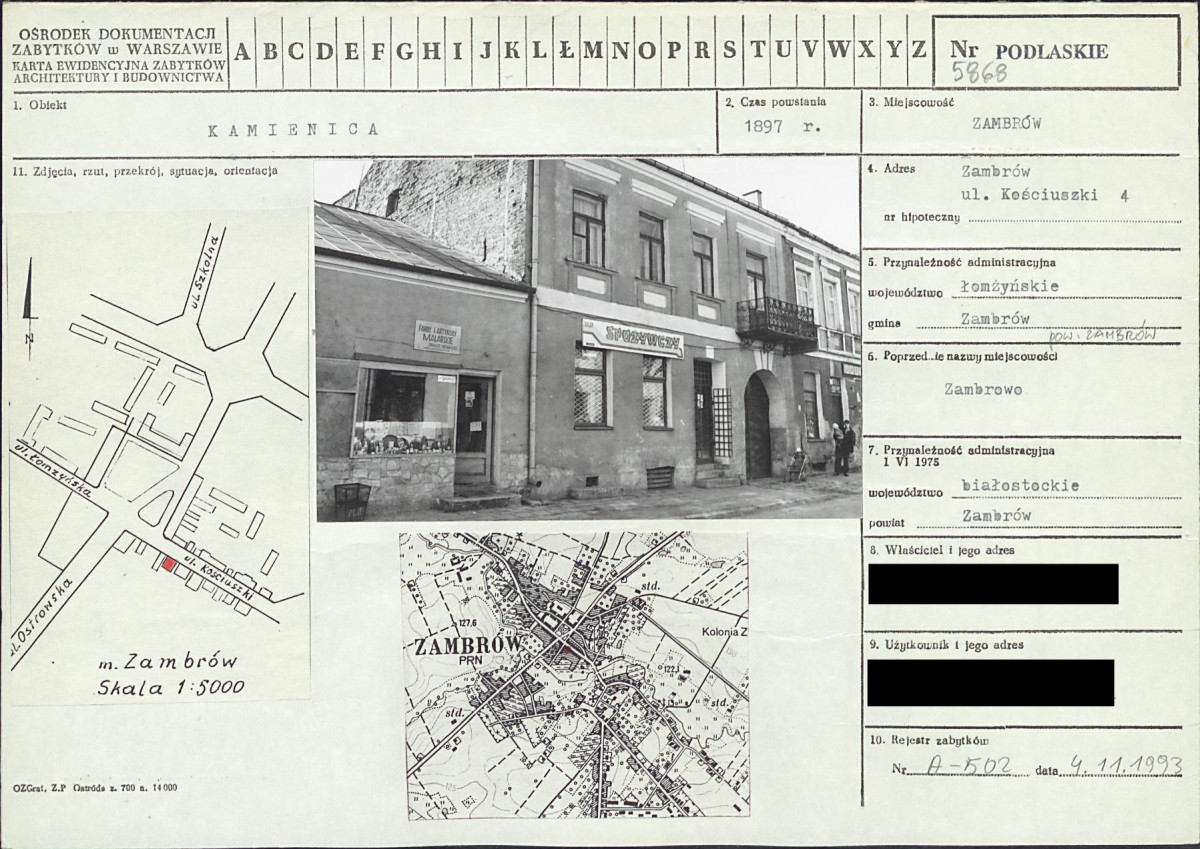 OŚRODEK DOKUMENTACJI
ZABYTKÓW w WARSZAWIE
KARTA EWIDENCYJNA ZABYTKÓW
ARCHITEKTURY I BUDOWNICTWA
A B C D E F G H I J K L Ł M N O P R S T U V W X Y Z
Nr PODLASKIE
5868
1. Obiekt
KAMIENICA
2. Czas powstania
1897 r.
3. Miejscowość
ZAMBRÓW
11. Zdjęcia, rzut, przekrój, sytuacja, orientacja
4. Adres
Zambrów
ul. Kościuszki 4
nr hipoteczny
5. Przynależność administracyjna
województwo łomżyńskie
gmina Zambrów
pow. ZAMBRÓW
6. Poprzednie nazwy miejscowości
Zambrowo
7. Przynależność administracyjna
1 VI 1975
województwo białostockie
powiat Zambrów
8. Właściciel i jego adres
9. Użytkownik i jego adres
10. Rejestr zabytków
Nr A-502 data 4.11.1993
ul. Szkolna
N
ul. Łomżyńska
ul. Kościuszki
ul. Ostrowska
m. Zambrów
Skala 1:5000
SPOŻYWCZY
MALARSKIE
std.
127,6
ZAMBRÓW
PRN
Kolonia Z
122,1
std.
std.
OZGraf, Z.P Ostróda z. 700 n. 14 000